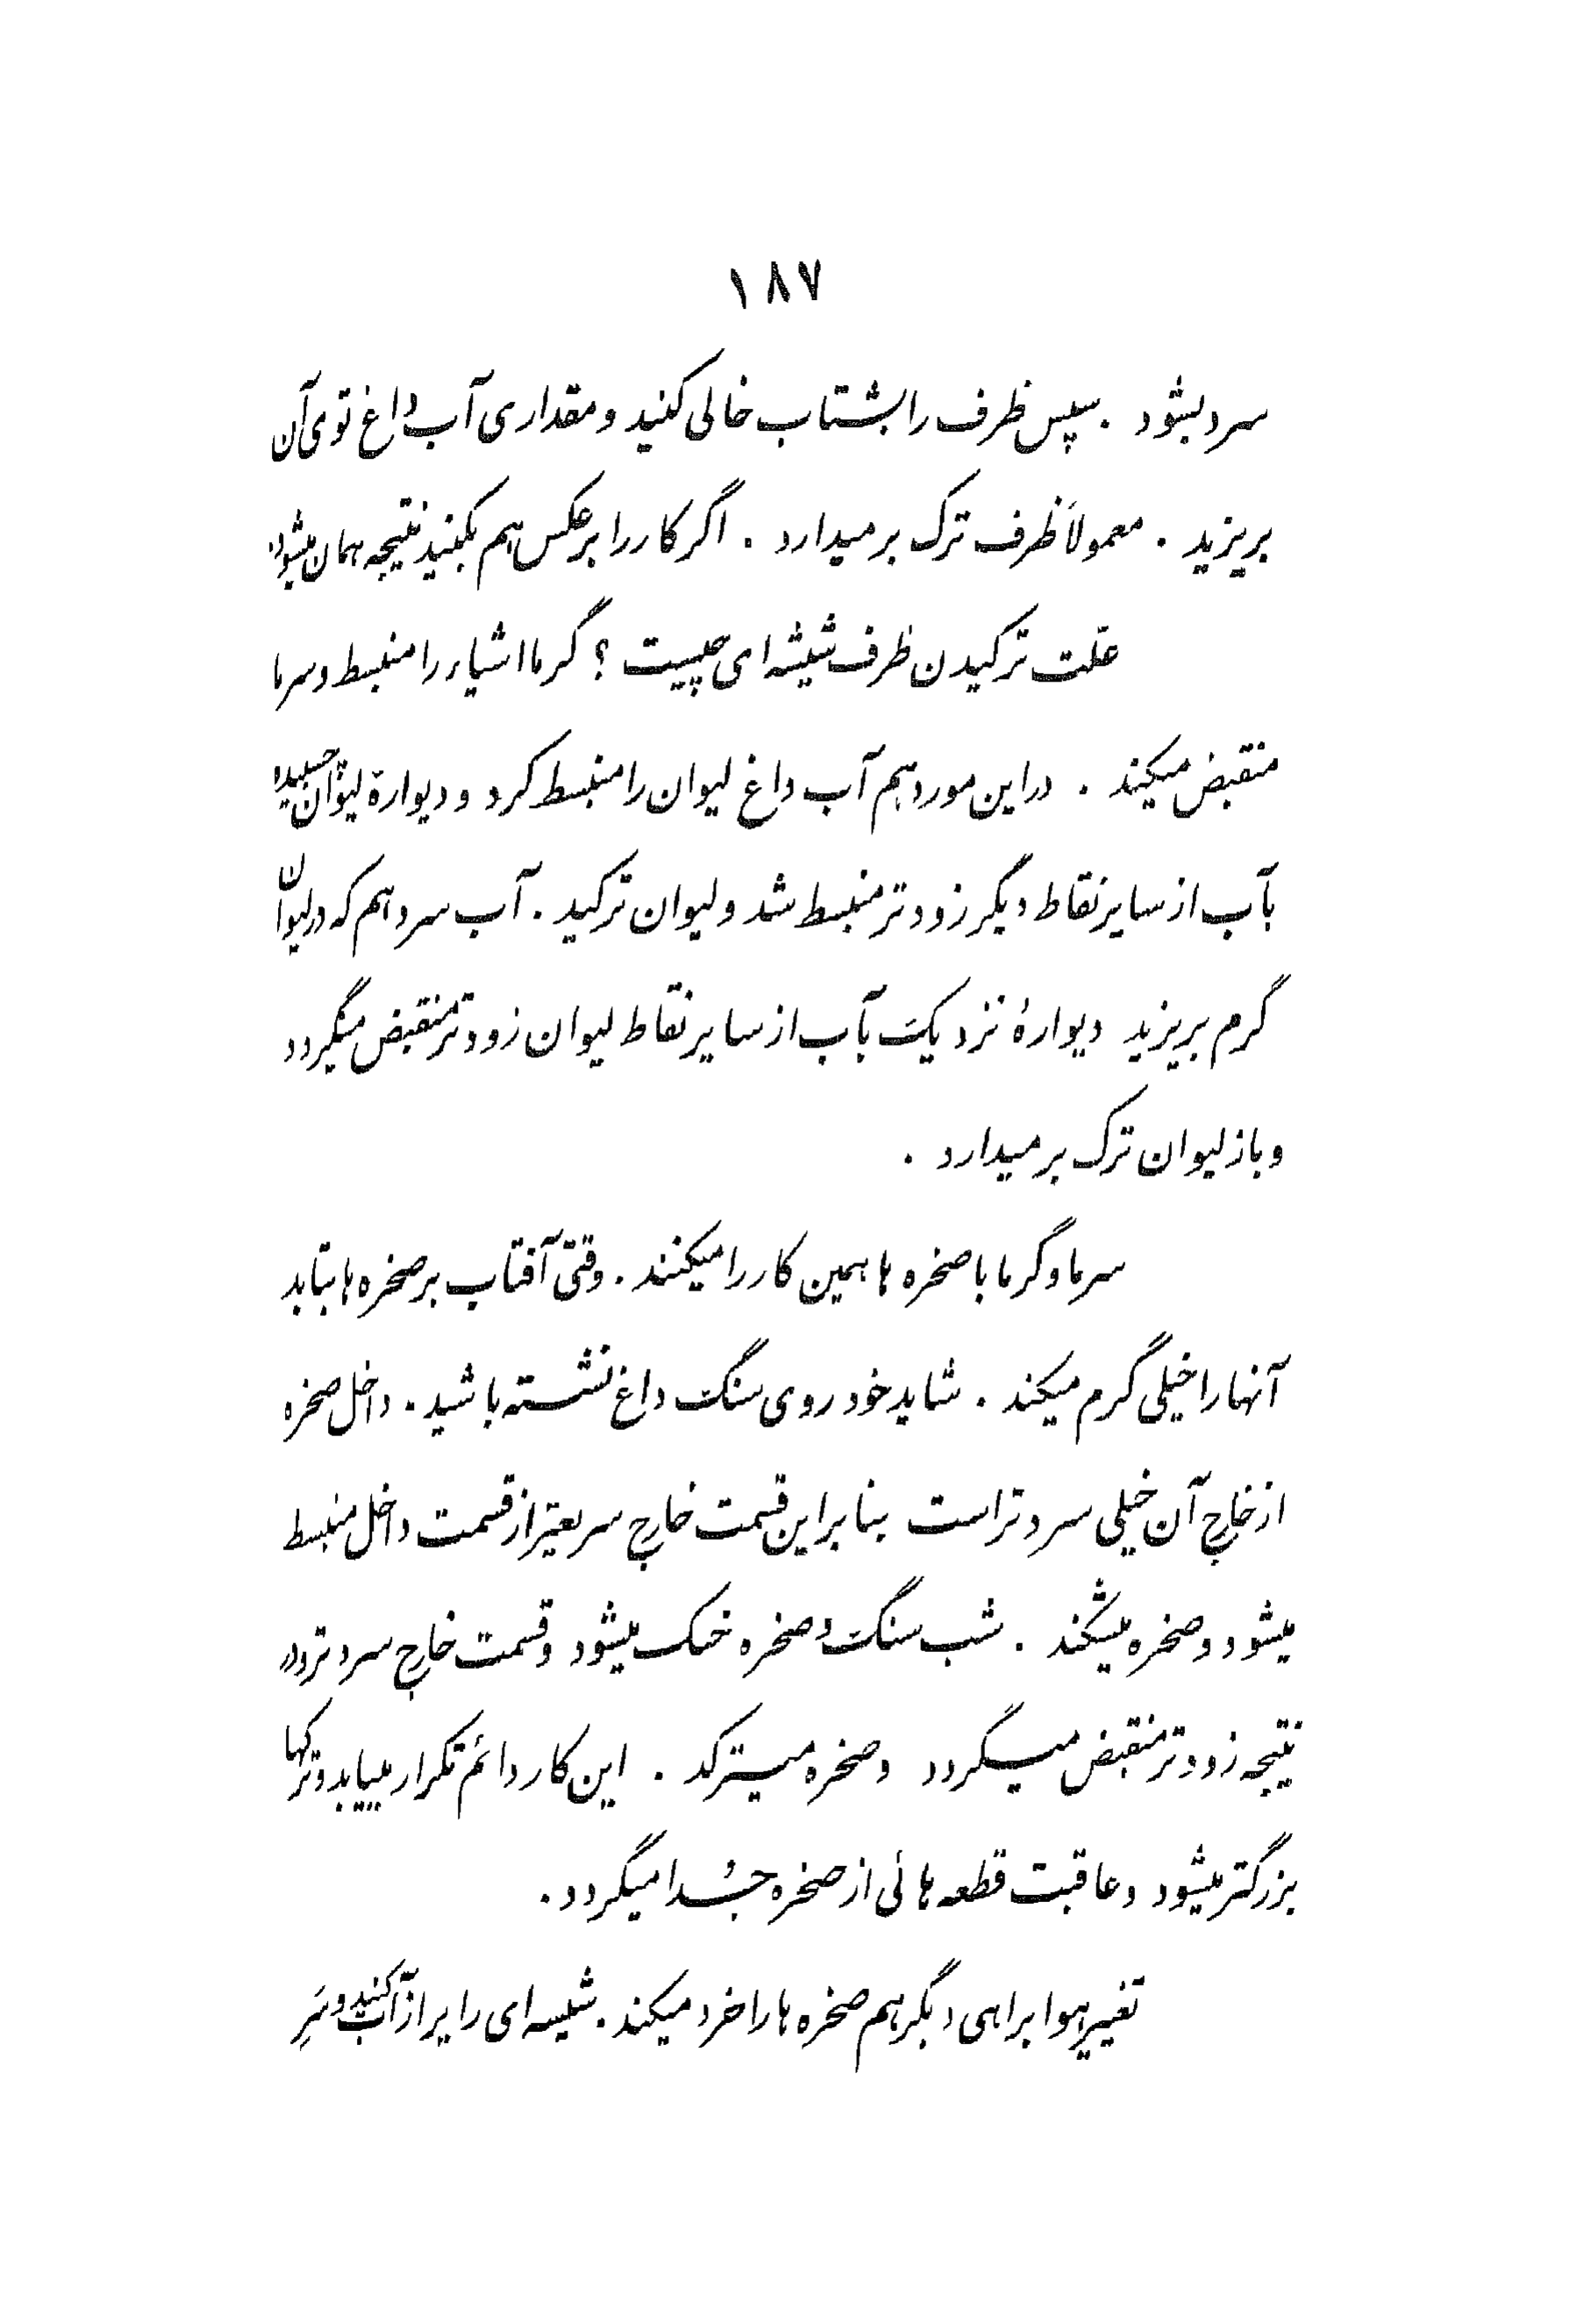 ۱۸۷
سرد بشود . سپس ظرف را بشتاب خالی کنید و مقداری آب داغ توی آن
بریزید . معمولاً ظرف ترک برمیدارد . اگر کار را برعکس هم بکنید نتیجه همان میشود.
علت ترکیدن ظرف شیشه ای چیست ؟ گرما اشیاء را منبسط و سرما
منقبض میکند . در این مورد هم آب داغ لیوان را منبسط کرد و دیوارهٔ لیوان چسبیده
بآب از سایر نقاط دیگر زودتر منبسط شد و لیوان ترکید . آب سرد هم که در لیوان
گرم بریزید دیوارهٔ نزدیک بآب از سایر نقاط لیوان زودتر منقبض میگردد
و باز لیوان ترک برمیدارد .
سرما و گرما با صخره ها همین کار را میکنند . وقتی آفتاب بر صخره ها بتابد
آنها را خیلی گرم میکند . شاید خود روی سنگ داغ نشسته باشید . داخل صخره
از خارج آن خیلی سردتر است بنابراین قسمت خارج سریعتر از قسمت داخل منبسط
میشود و صخره میشکند . شب سنگ و صخره خنک میشود و قسمت خارج سردتر و در
نتیجه زودتر منقبض میگردد و صخره میترکد . این کار دائم تکرار مییابد و ترکها
بزرگتر میشود و عاقبت قطعه هائی از صخره جُدا میگردد .
تغییر هوا براهی دیگر هم صخره ها را خرد میکند . شیشه ای را پر از آب کنید و سَرِ